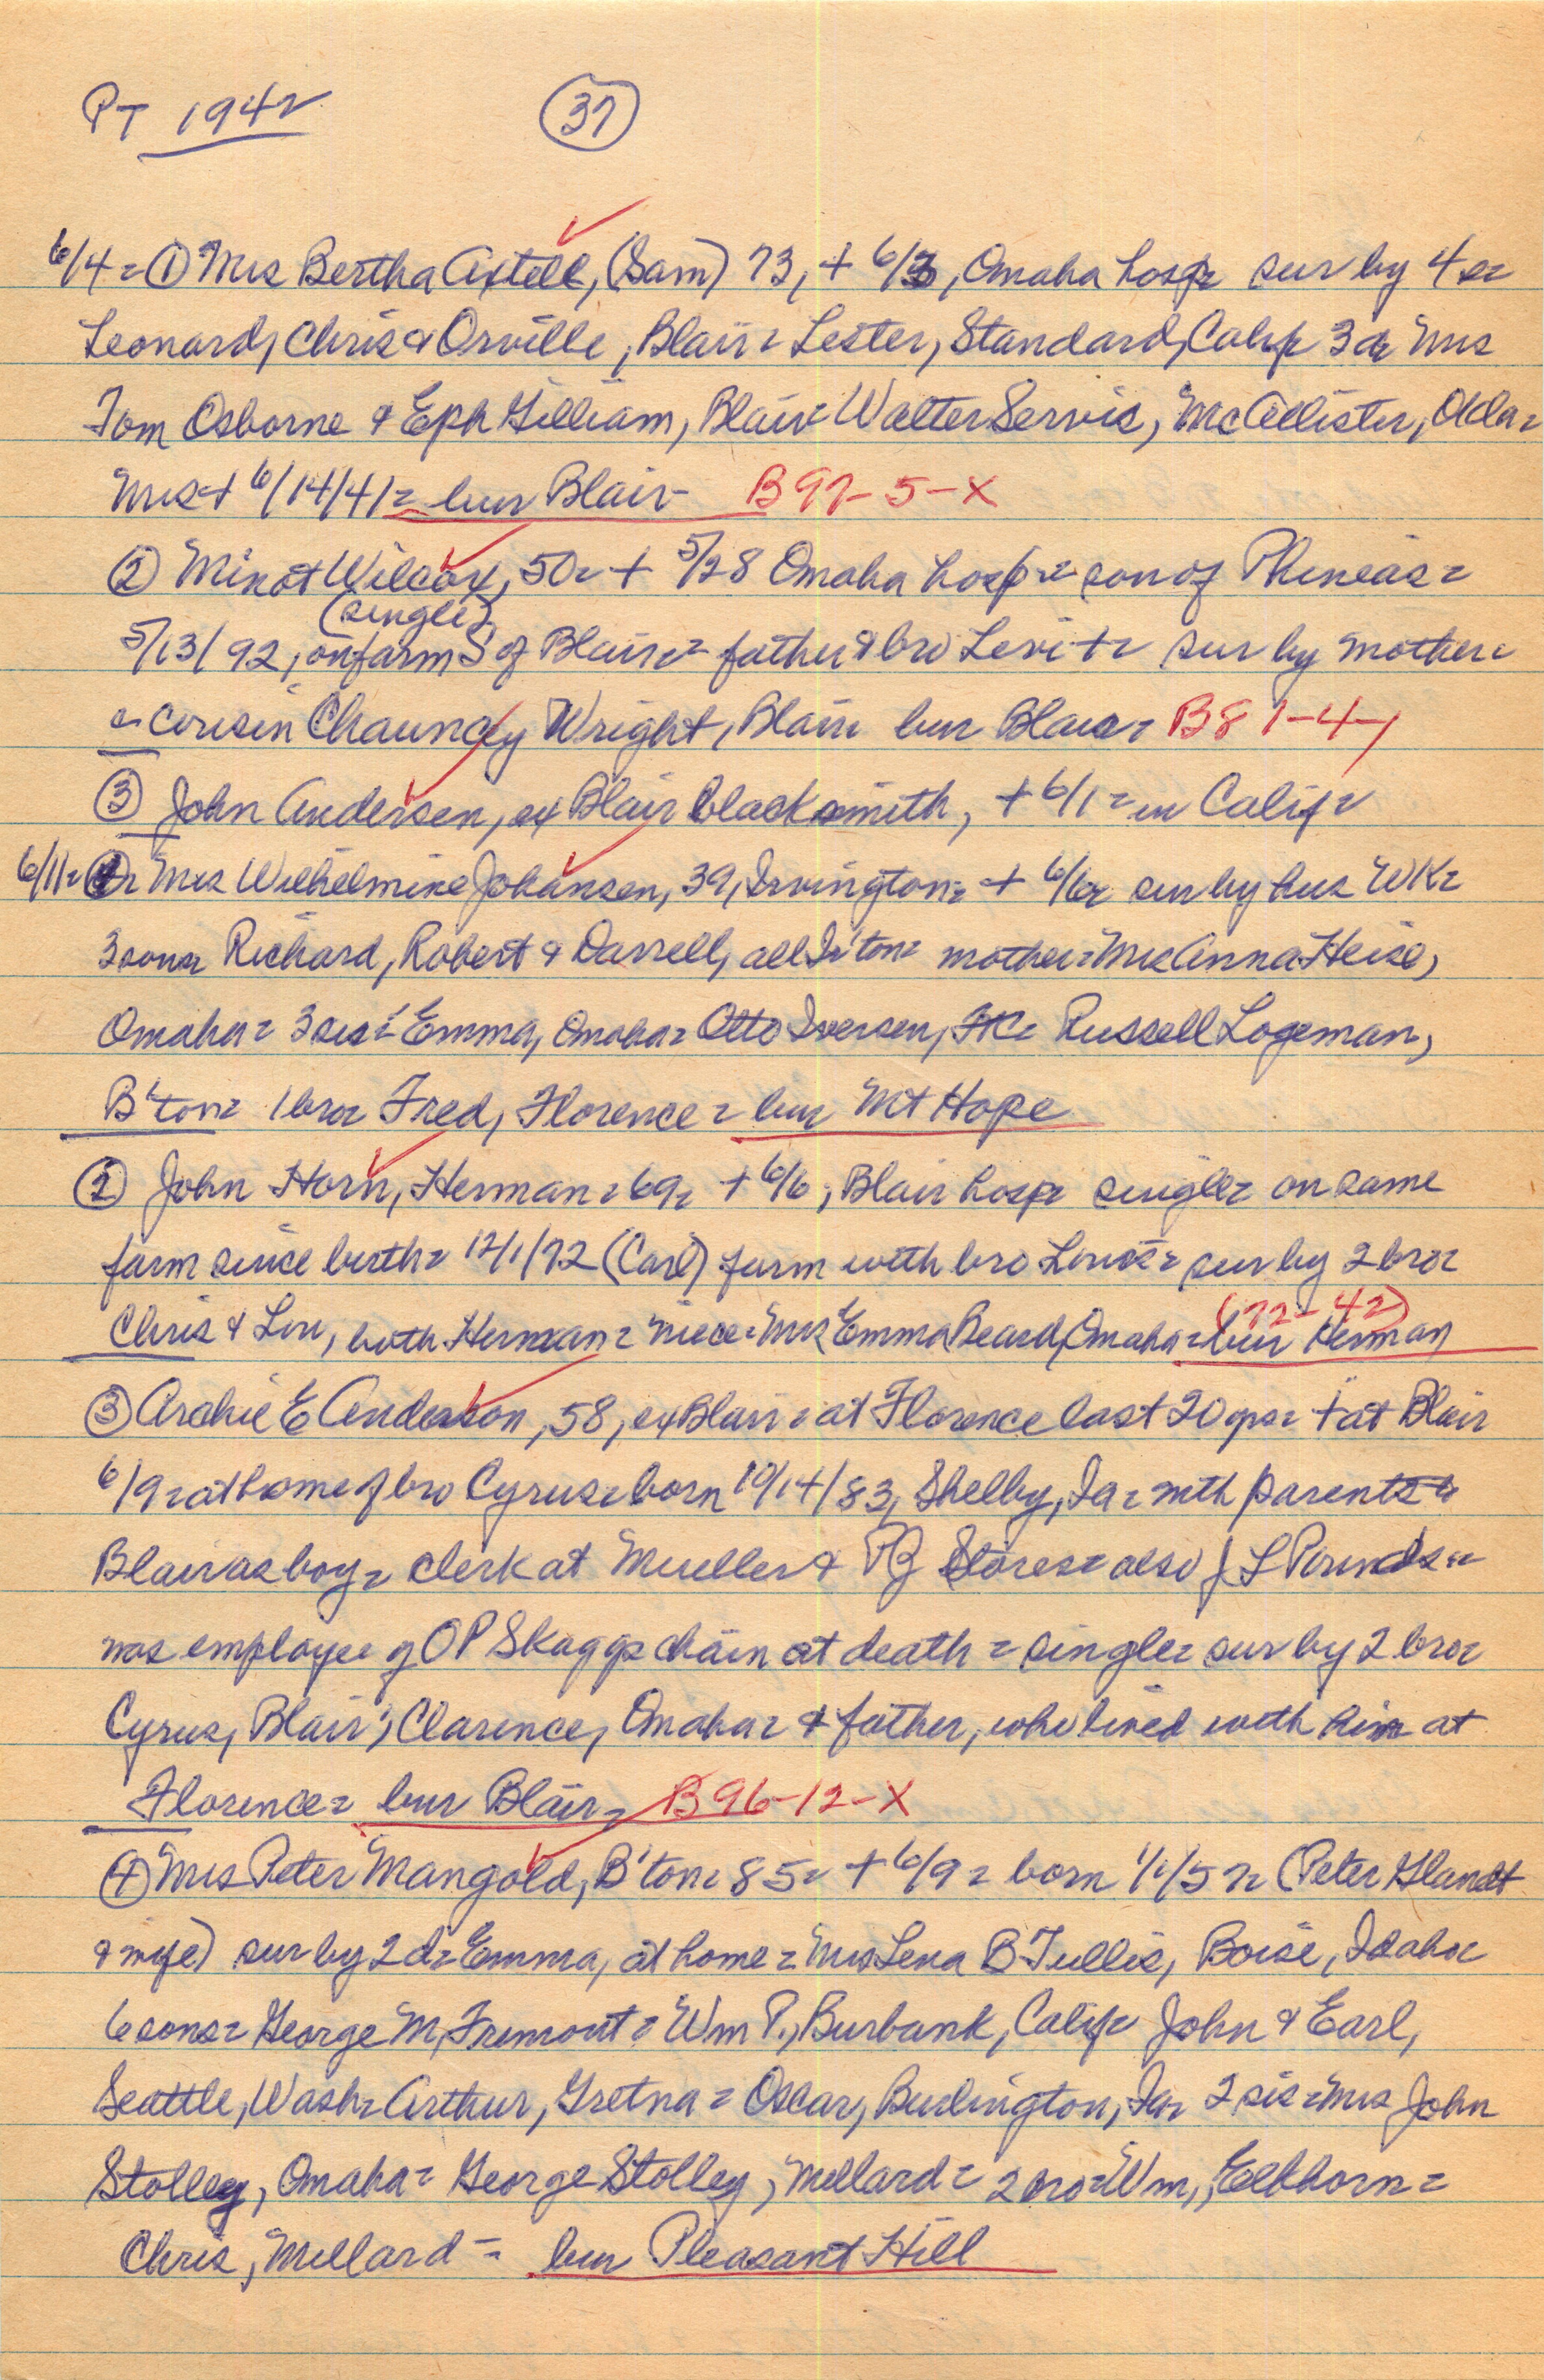 PT 1942 (37)
6/4 = ① Mrs Bertha Axtell, (Sam) 73, + 6/3, Omaha hosp = sur by 4 s =
Leonard, Chris & Orville, Blair = Lester, Standard, Calif = 3 d = Mrs
Tom Osborne & Eph Gilliam, Blair = Walter Servis, McAllister, Okla =
Mr S + 6/14/41 = bur Blair - B 97-5-X
② Minot Wilcox, 50 = + 5/28 Omaha hosp = son of Phineas =
(single)
5/13/92, on farm S of Blair = father & bro Levi + = sur by mother =
= cousin Chauncey Wright, Blair bur Blair = B 81-4-1
③ John Andersen, ex Blair blacksmith, + 6/1 = in Calif =
6/11 = ① = Mrs Wilhelmine Johansen, 39, Irvington = + 6/6 = sur by hus WK =
3 sons = Richard, Robert & Darrell, all I'ton = mother = Mrs Anna Heise,
Omaha = 3 sis = Emma, Omaha = Otto Iversen, FK = Russell Logeman,
B'ton = 1 bro = Fred, Florence = bur Mt Hope
② John Horn, Herman = 69 = + 6/6, Blair hosp = single = on same
farm since birth = 12/1/72 (Carl) farm with bro Louis = sur by 2 bro =
(72-42)
Chris & Lou, both Herman = niece = Mrs Emma Beard, Omaha = bur Herman
③ Archie E Anderson, 58, ex Blair = at Florence last 20 yrs = + at Blair
6/9 = at home of bro Cyrus = born 10/14/83, Shelby, Ia = with parents to
Blair as boy = clerk at Mueller & PJ Stores = also J L Pounds =
was employee of OP Skaggs chain at death = single = sur by 2 bro =
Cyrus, Blair; Clarence, Omaha = & father, who lived with him at
Florence = bur Blair = B 96-12-X
④ Mrs Peter Mangold, B'ton = 85 = + 6/9 = born 1/1/57 = (Peter Glandt
& wife) sur by 2 d = Emma, at home = Mrs Lena B Tullis, Boise, Idaho =
6 sons = George M, Fremont = Wm P., Burbank, Calif = John & Earl,
Seattle, Wash = Arthur, Gretna = Oscar, Burlington, Ia = 2 sis = Mrs John
Stolley, Omaha = George Stolley, Millard = 2 bro = Wm, Elkhorn =
Chris, Millard = bur Pleasant Hill